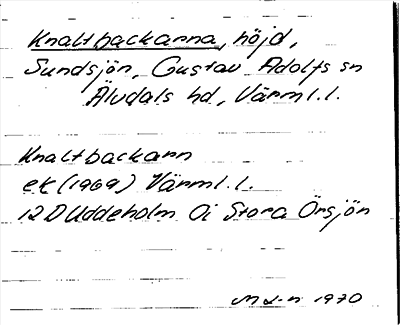 Knaltbackarna, höjd,
Sundsjön, Gustav Adolfs sn
Älvdals hd, Värml.l.
Knaltbackarn
ek (1969) Värml.l.
12D Uddeholm 0i Stora Örsjön
1970